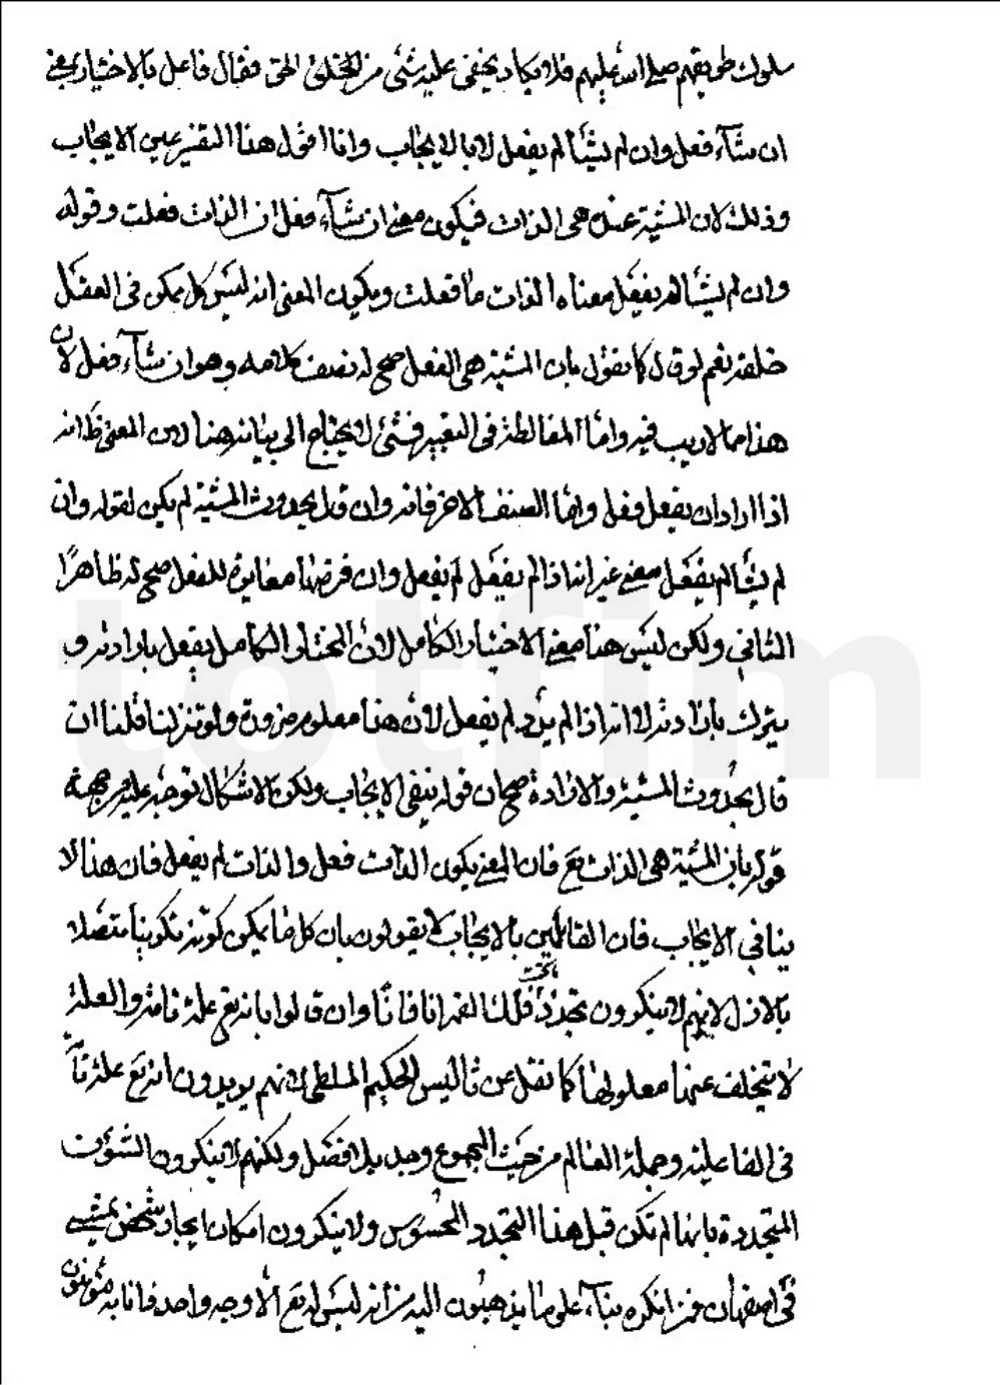 سلوك طريقهم صلى الله عليهم فلا يكاد يخفى عليه شئ من الخلق الحق فقال فاعل بالاختيار بمعنى
ان شآء فعل وان لم يشأ لم يفعل لا بالايجاب وانا اقول هذا التفسير عين الايجاب
وذلك لان المشية عنده هي الذات فيكون معنى ان شآء فعل ان الذات فعلت وقوله
وان لم يشأ لم يفعل معناه الذات ما فعلت ويكون المعنى انه ليس كل ممكن في العقل
خلقه نعم لو قال كما نقول بان المشية هي الفعل صح له نصف كلامه وهو ان شآء فعل لان
هذا مما لا ريب فيه واما المغالطة في التعبير فشئ لا يحتاج الى بيانه هنا لان المعنى كذا انه
اذا اراد ان يفعل فعل واما النصف الاخر فانه وان قال بحدوث المشية لم يكن لقوله وان
لم يشأ لم يفعل معنى غير انه اذا لم يفعل لم يفعل وان فرضها مغايرة للفعل صح له ظاهرًا
الثاني ولكن ليس هذا معنى الاختيار الكامل لان المختار الكامل يفعل بارادته و
يترك بارادته لا انه اذا لم يرد لم يفعل لان هذا معلوم ضرورة ولو تنزلنا قلنا ان
قال بحدوث المشية والارادة صح ان قوله ينفى الايجاب ولكن الاشكال توجه عليه من جهة
قوله بان المشية هي الذات مع فان المعنى يكون الذات فعل والذات لم يفعل فان هذا لا
ينافي الايجاب فان القائلين بالايجاب لا يقولون بان كل ما يمكن كونه تكوينا متصلا
بالازل لانهم لا ينكرون تجدد ما تحت فلك القمر انا فانًا وان قالوا بانه تع علة تامة والعلة
لا يتخلف عنها معلولها كما نقل عن ثاليس الحكيم الملطى لانهم يريدون انه تع علة تامة
في الفاعلية وجملة العالم من حيث المجموع وجد بلا فصل ولكنهم لا ينكرون الشؤن
المتجددة بانها لم تكن قبل هذا التجدد المحسوس ولا ينكرون امكان ايجاد شخص يمشى
في اصفهان فمن انكره بناء على ما يذهبون اليه من انه ليس له تع الا وجه واحد فانا به مؤمنون